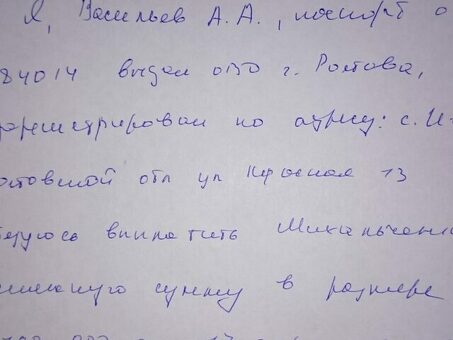 Я, Васильев А. А., паспорт о
84014 выдан ОВО г. Ростова,
регистрирован по адресу: с. И-
остовской обл ул Красная 13
бязуюсь выплатить Михальченко
енежную сумму в размере